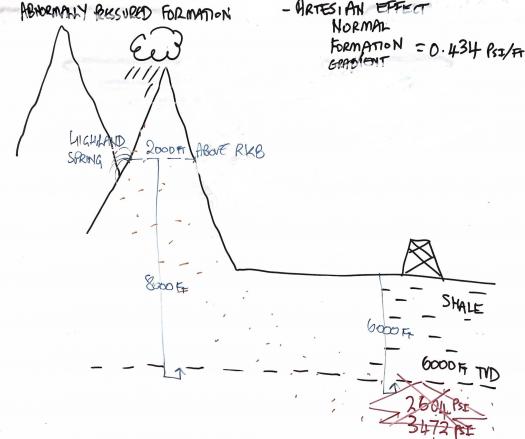 ABNORMALLY PRESSURED FORMATION
- ARTESIAN EFFECT
NORMAL
FORMATION = 0.434 PSI/Ft
GRADIENT
HIGHLAND
SPRING
2000 Ft ABOVE RKB
8000 Ft
6000 Ft
SHALE
6000 Ft TVD
2604 PSI
3472 PSI